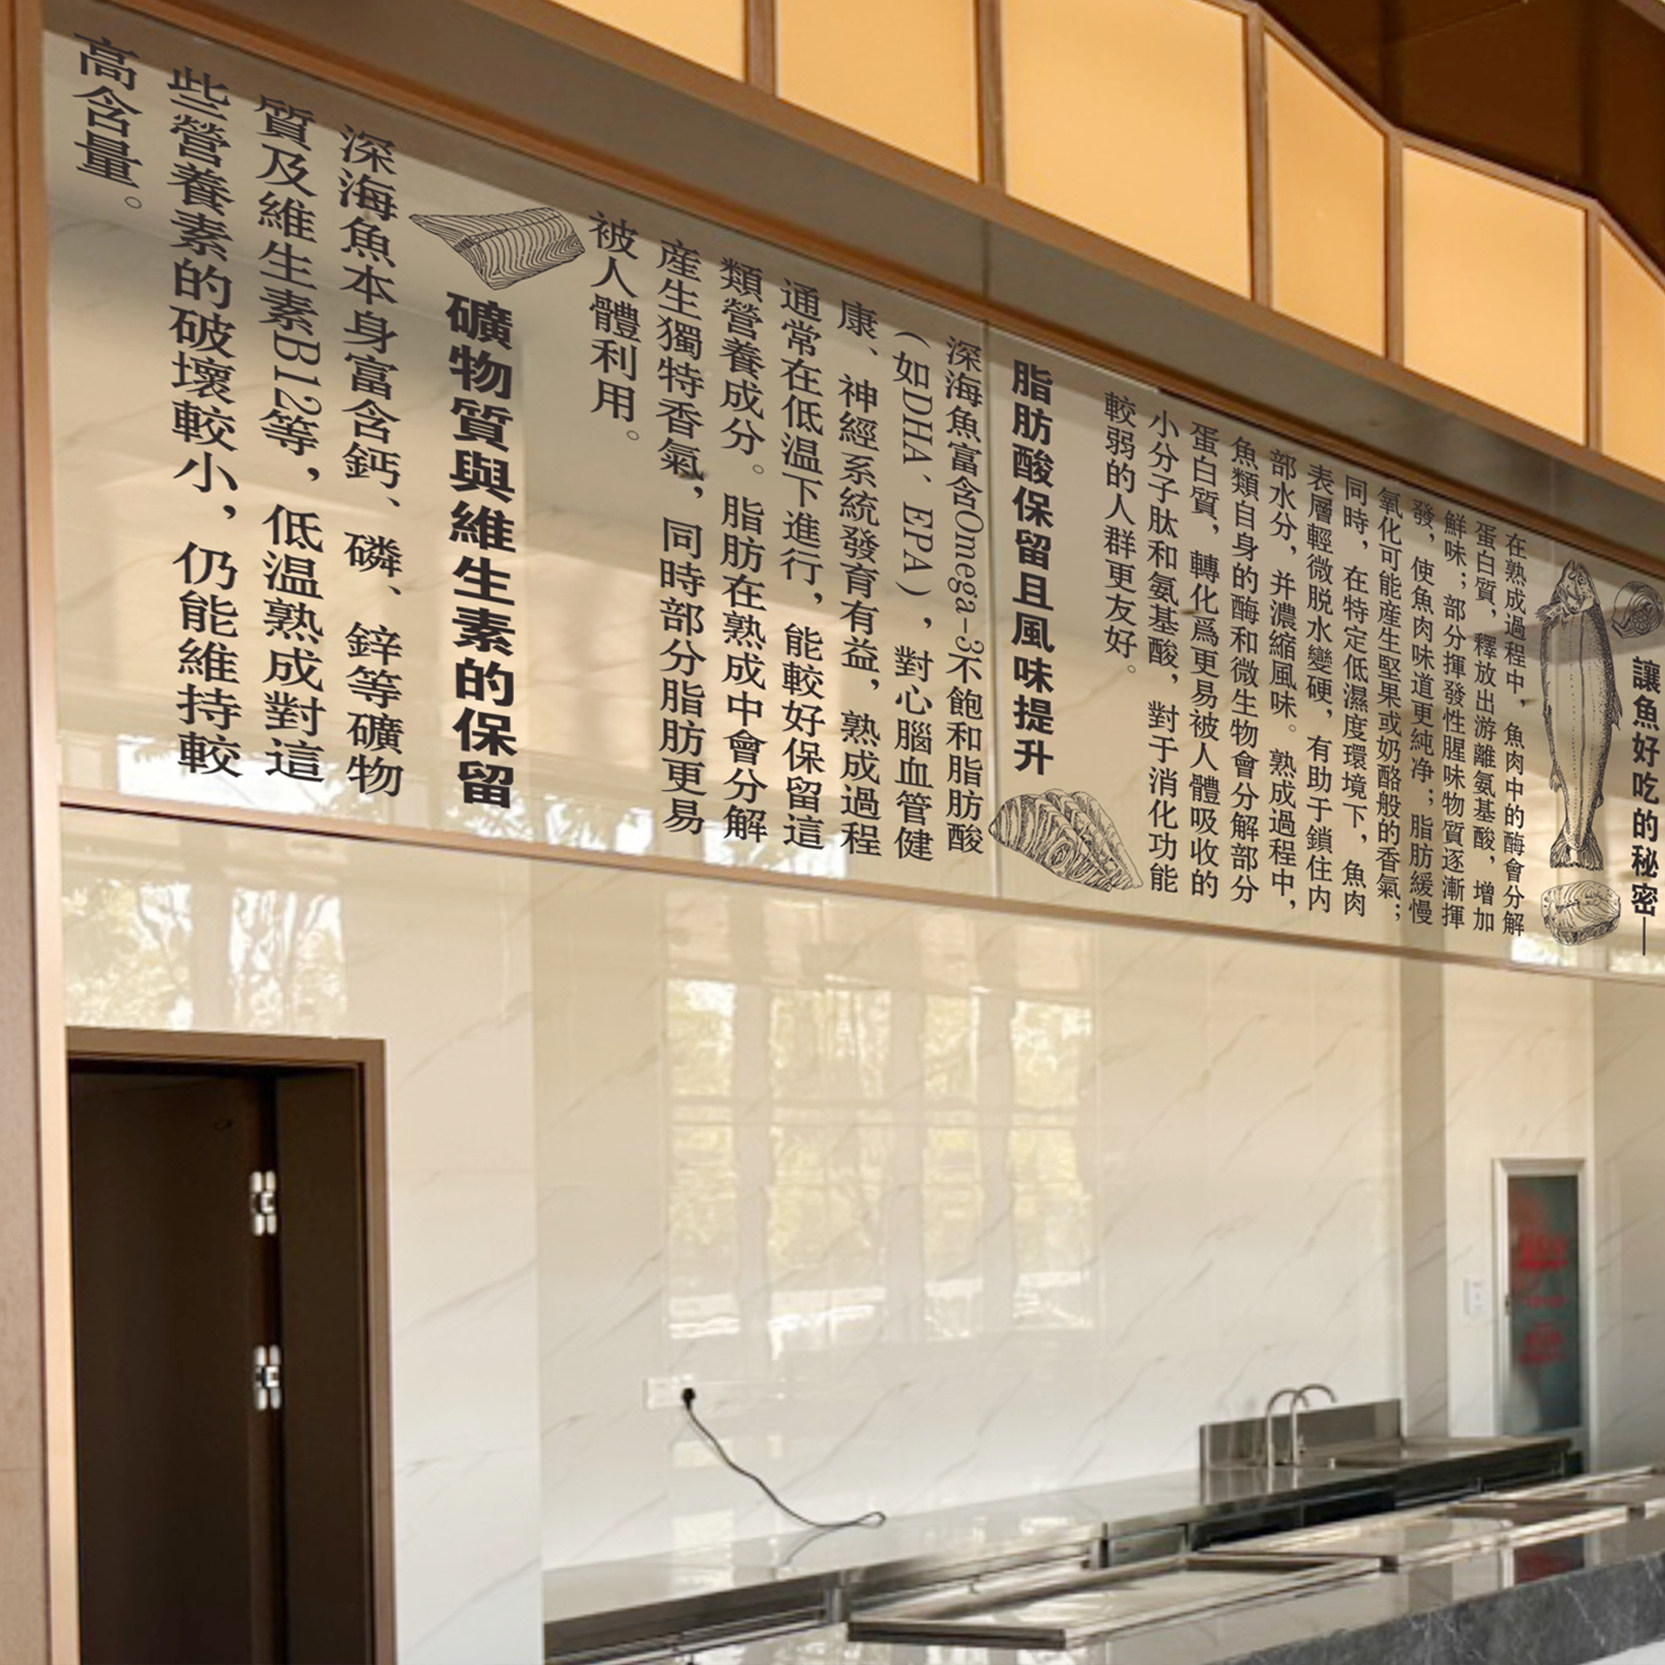 讓魚好吃的秘密——
在熟成過程中，魚肉中的酶會分解
蛋白質，釋放出游離氨基酸，增加
鮮味；部分揮發性腥味物質逐漸揮
發，使魚肉味道更純净；脂肪緩慢
氧化可能産生堅果或奶酪般的香氣；
同時，在特定低濕度環境下，魚肉
表層輕微脱水變硬，有助于鎖住内
部水分，并濃縮風味。熟成過程中，
魚類自身的酶和微生物會分解部分
蛋白質，轉化爲更易被人體吸收的
小分子肽和氨基酸，對于消化功能
較弱的人群更友好。
脂肪酸保留且風味提升
深海魚富含Omega-3不飽和脂肪酸
（如DHA、EPA），對心腦血管健
康、神經系統發育有益，熟成過程
通常在低温下進行，能較好保留這
類營養成分。脂肪在熟成中會分解
産生獨特香氣，同時部分脂肪更易
被人體利用。
礦物質與維生素的保留
深海魚本身富含鈣、磷、鋅等礦物
質及維生素B12等，低温熟成對這
些營養素的破壞較小，仍能維持較
高含量。